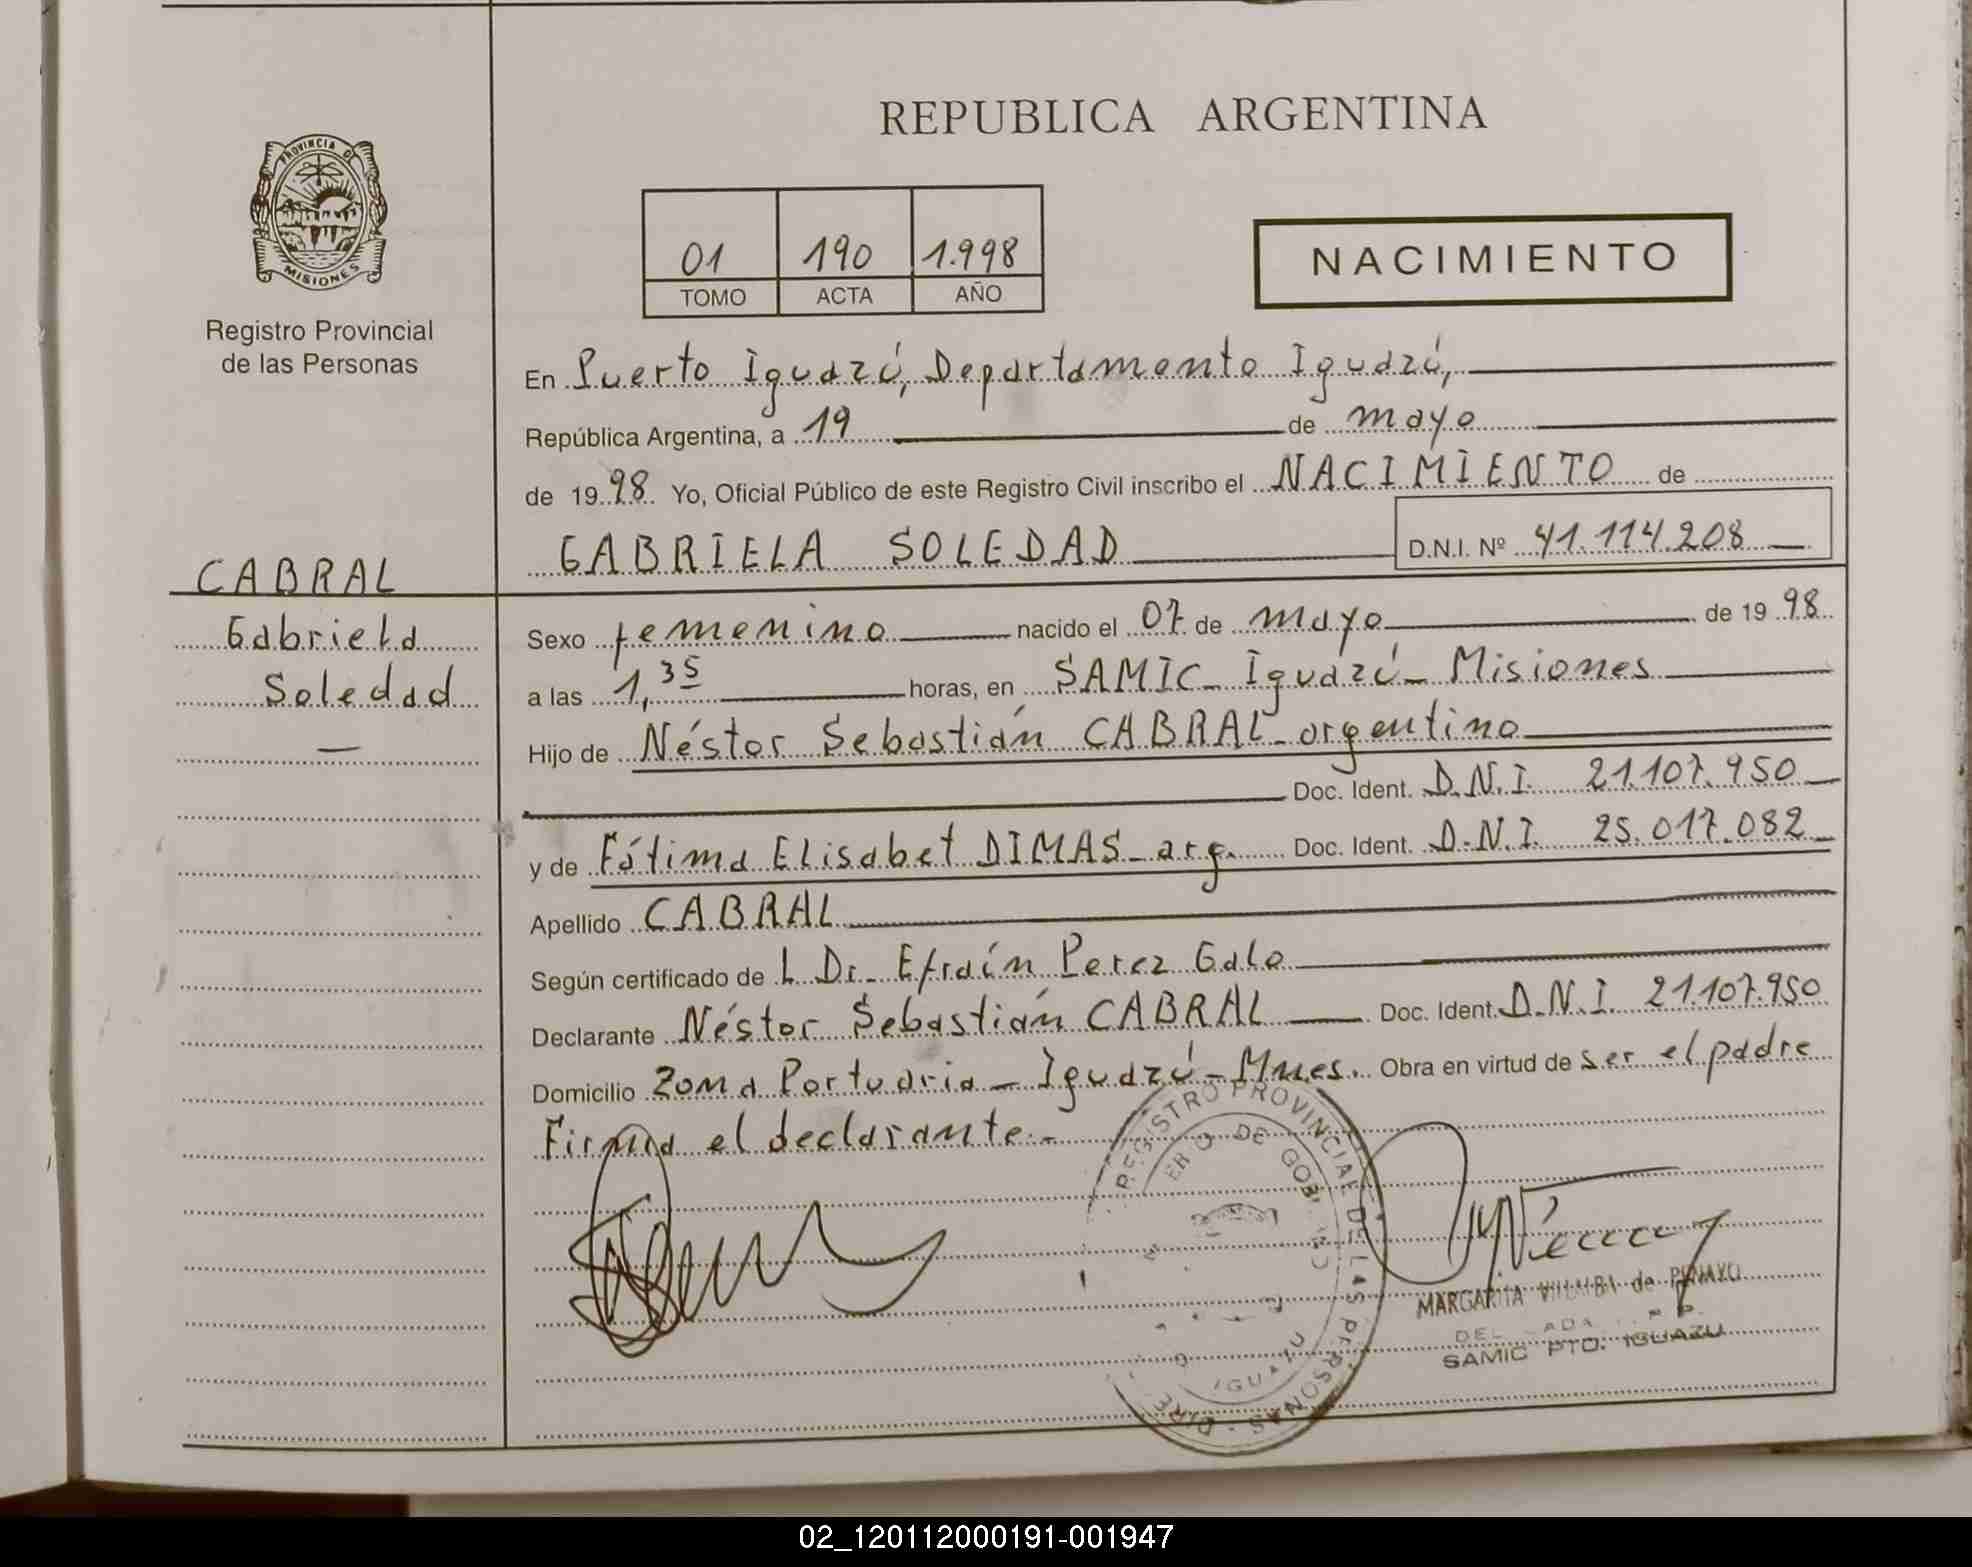 REPUBLICA ARGENTINA
PROVINCIA DE MISIONES
Registro Provincial
de las Personas
01 190 1.998
TOMO ACTA AÑO
NACIMIENTO
En Puerto Iguazú, Departamento Iguazú,
República Argentina, a 19 de mayo
de 1998 Yo, Oficial Público de este Registro Civil inscribo el NACIMIENTO de
GABRIELA SOLEDAD D.N.I. Nº 41.114.208
CABRAL
Gabriela
Soledad
Sexo femenino nacido el 07 de mayo de 1998
a las 1,35 horas, en SAMIC - Iguazú - Misiones
Hijo de Néstor Sebastián CABRAL - argentino
Doc. Ident. D.N.I. 21.107.950
y de Fátima Elisabet DIMAS - arg. Doc. Ident. D.N.I. 25.017.082
Apellido CABRAL
Según certificado de L Dr. Efraín Perez Galo
Declarante Néstor Sebastián CABRAL Doc. Ident. D.N.I. 21.107.950
Domicilio Zona Portuaria - Iguazú - Mnes. Obra en virtud de ser el padre
Firma el declarante.-
REGISTRO PROVINCIAL DE LAS PERSONAS
DE GOBIERNO
IGUAZU
MARGARITA de PENAYO
SAMIC PTO. IGUAZU
02_120112000191-001947